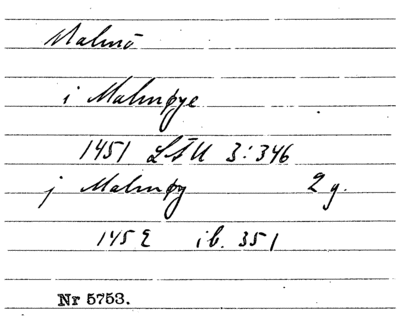 Malmö
i Malmøye
1451 LSU 3:346
j Malmøy 2 g.
1452 ib. 351
Nr 5753.